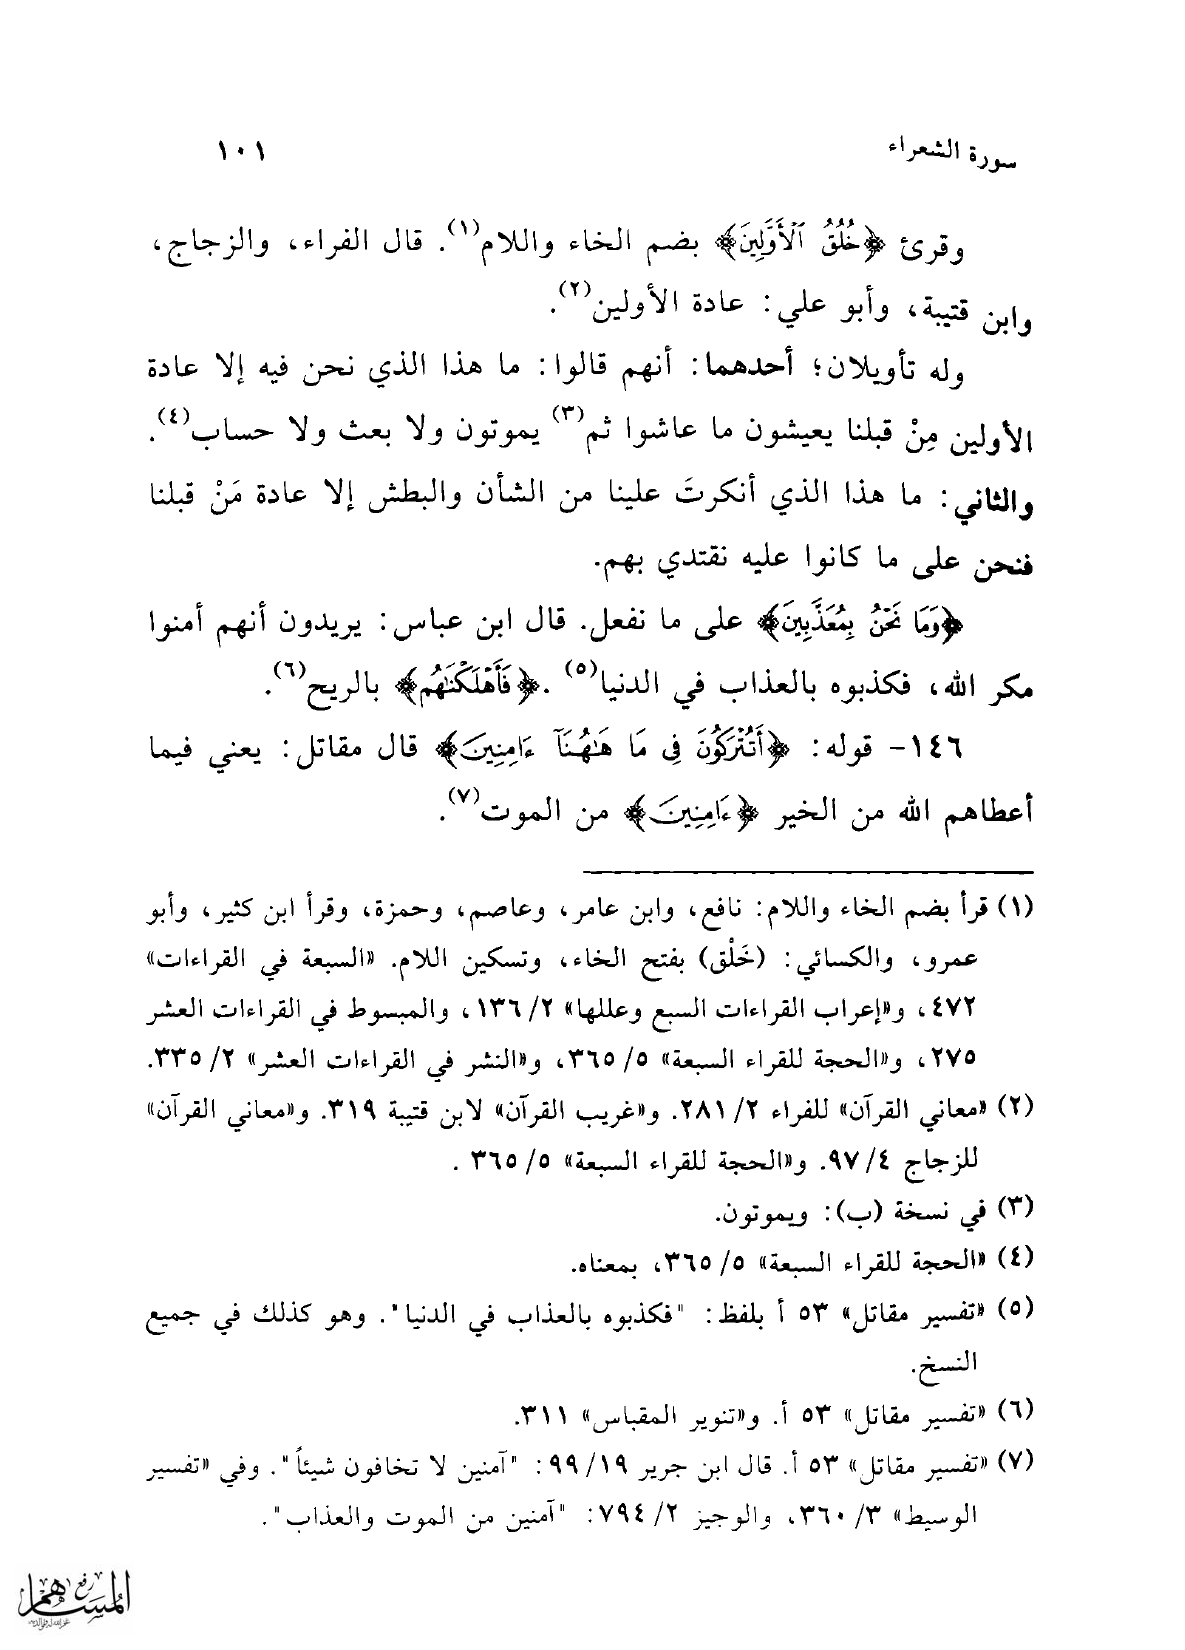 سورة الشعراء ١٠١
وقرئ ﴿خُلُقُ ٱلْأَوَّلِينَ﴾ بضم الخاء واللام(١). قال الفراء، والزجاج،
وابن قتيبة، وأبو علي: عادة الأولين(٢).
وله تأويلان؛ أحدهما: أنهم قالوا: ما هذا الذي نحن فيه إلا عادة
الأولين مِنْ قبلنا يعيشون ما عاشوا ثم(٣) يموتون ولا بعث ولا حساب(٤).
والثاني: ما هذا الذي أنكرتَ علينا من الشأن والبطش إلا عادة مَنْ قبلنا
فنحن على ما كانوا عليه نقتدي بهم.
﴿وَمَا نَحْنُ بِمُعَذَّبِينَ﴾ على ما نفعل. قال ابن عباس: يريدون أنهم أمنوا
مكر الله، فكذبوه بالعذاب في الدنيا(٥) .﴿فَأَهْلَكْنَٰهُمْ﴾ بالريح(٦).
١٤٦- قوله: ﴿أَتُتْرَكُونَ فِى مَا هَٰهُنَآ ءَامِنِينَ﴾ قال مقاتل: يعني فيما
أعطاهم الله من الخير ﴿ءَامِنِينَ﴾ من الموت(٧).
(١) قرأ بضم الخاء واللام: نافع، وابن عامر، وعاصم، وحمزة، وقرأ ابن كثير، وأبو
عمرو، والكسائي: (خَلْق) بفتح الخاء، وتسكين اللام. «السبعة في القراءات»
٤٧٢، و«إعراب القراءات السبع وعللها» ٢/ ١٣٦، والمبسوط في القراءات العشر
٢٧٥، و«الحجة للقراء السبعة» ٥/ ٣٦٥، و«النشر في القراءات العشر» ٢/ ٣٣٥.
(٢) «معاني القرآن» للفراء ٢/ ٢٨١. و«غريب القرآن» لابن قتيبة ٣١٩. و«معاني القرآن»
للزجاج ٤/ ٩٧. و«الحجة للقراء السبعة» ٥/ ٣٦٥ .
(٣) في نسخة (ب): ويموتون.
(٤) «الحجة للقراء السبعة» ٥/ ٣٦٥، بمعناه.
(٥) «تفسير مقاتل» ٥٣ أ بلفظ: "فكذبوه بالعذاب في الدنيا". وهو كذلك في جميع
النسخ.
(٦) «تفسير مقاتل» ٥٣ أ. و«تنوير المقباس» ٣١١.
(٧) «تفسير مقاتل» ٥٣ أ. قال ابن جرير ١٩/ ٩٩: "آمنين لا تخافون شيئاً". وفي «تفسير
الوسيط» ٣/ ٣٦٠، والوجيز ٢/ ٧٩٤: "آمنين من الموت والعذاب".